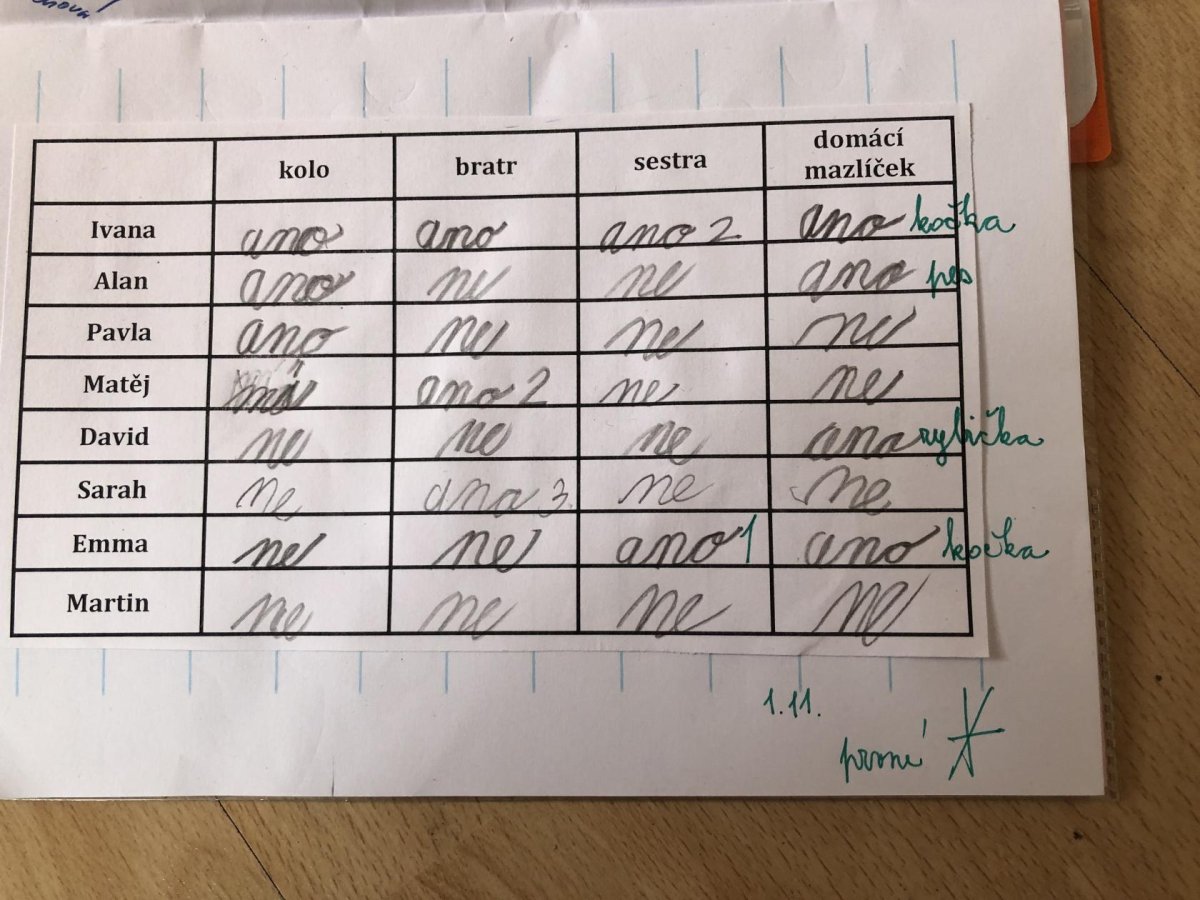 kolo bratr sestra domácí mazlíček
Ivana ano ano ano 2 ano kočka
Alan ano ne ne ano pes
Pavla ano ne ne ne
Matěj má ano 2 ne ne
David ne ne ne ana rybička
Sarah ne ana 3 ne ne
Emma ne ne ano 1 ano kočka
Martin ne ne ne ne
1.11.
první